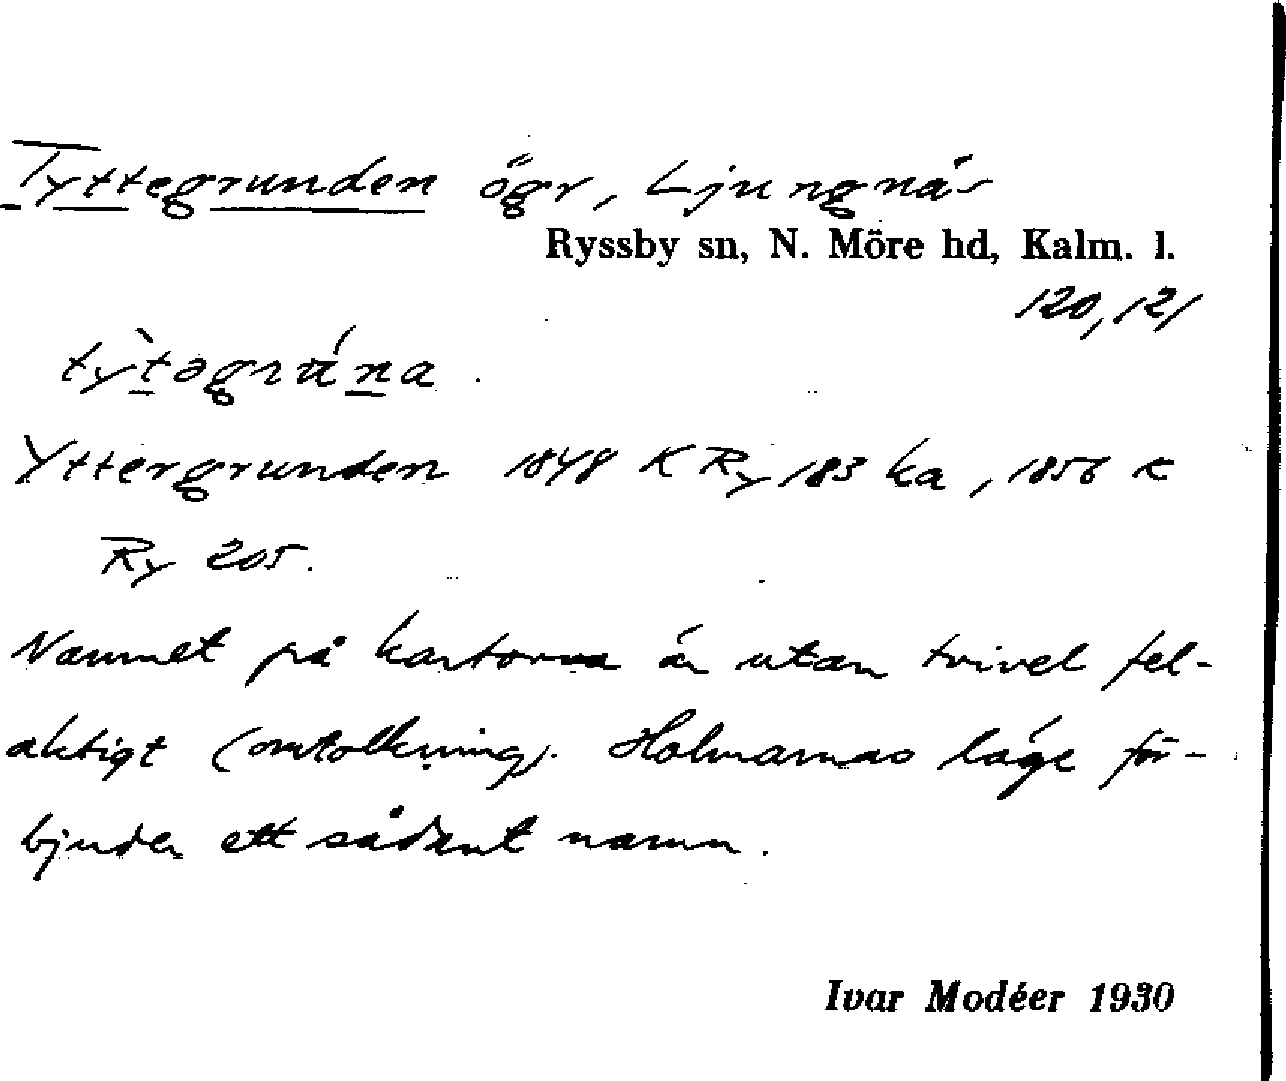 Tyttegrunden ögr, Ljungnäs
Ryssby sn, N. Möre hd, Kalm. l.
120, 121
ty̍̀təgrúna.
Yttergrunden 1848 K Ry 183 ka, 1856 K
Ry 205.
Namnet på kartorna är utan tvivel fel-
aktigt (omtolkning). Holmarnas läge för-
bjuder ett sådant namn.
Ivar Modéer 1930